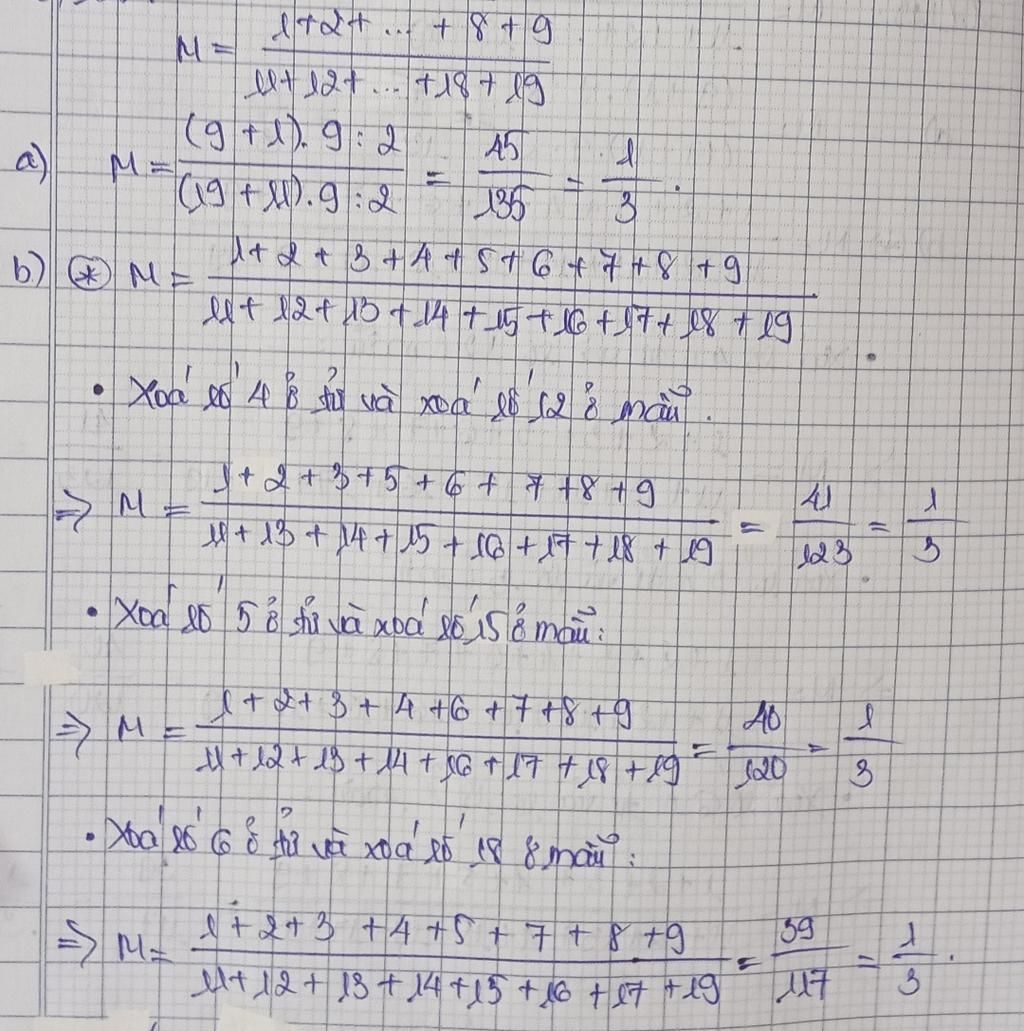 M = (1+2+ ... + 8 + 9)/(11+12+ ... +18+19)
a) M = ((9 + 1). 9 : 2)/((19 + 11). 9 : 2) = 45/135 = 1/3 .
b) (*) M = (1+ 2 + 3 + 4 + 5 + 6 + 7 + 8 + 9)/(11+ 12 + 13 + 14 + 15 + 16 + 17 + 18 + 19)
• Xoá số 4 ở tử và xoá số 12 ở mẫu .
=> M = (1 + 2 + 3 + 5 + 6 + 7 + 8 + 9)/(11 + 13 + 14 + 15 + 16 + 17 + 18 + 19) = 41/123 = 1/3
• Xoá số 5 ở tử và xoá số 15 ở mẫu :
=> M = (1 + 2 + 3 + 4 + 6 + 7 + 8 + 9)/(11 + 12 + 13 + 14 + 16 + 17 + 18 + 19) = 40/120 = 1/3
• Xoá số 6 ở tử và xoá số 18 ở mẫu :
=> M = (1 + 2 + 3 + 4 + 5 + 7 + 8 + 9)/(11 + 12 + 13 + 14 + 15 + 16 + 17 + 19) = 39/117 = 1/3 .